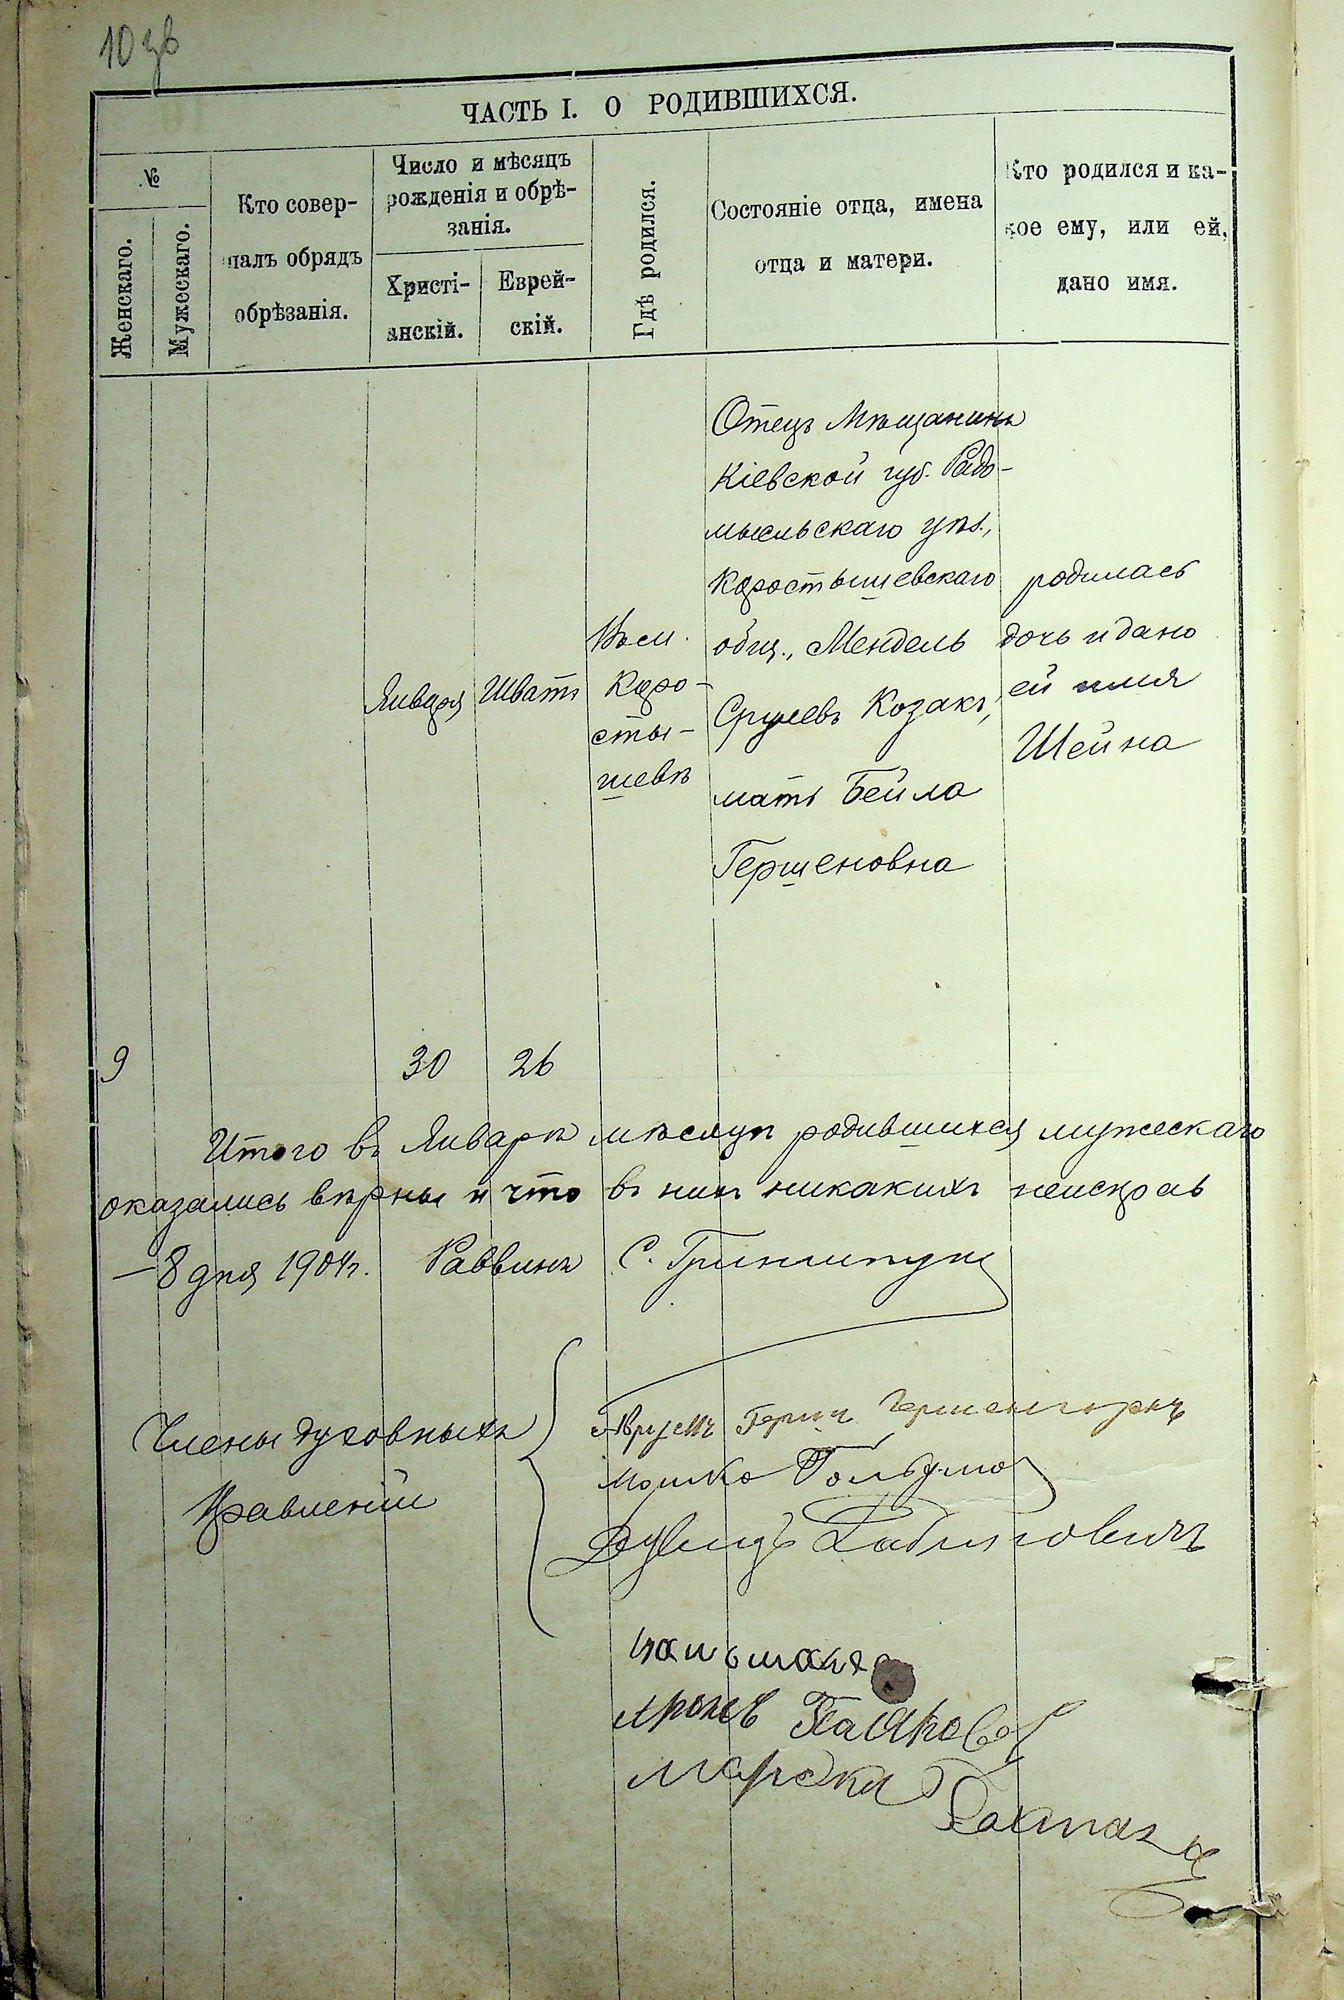 10 зв
ЧАСТЬ I. О РОДИВШИХСЯ.
№
Женскаго.
Мужескаго.
Кто совер-
шалъ обрядъ
обрѣзанія.
Число и мѣсяцъ
рожденія и обрѣ-
занія.
Христі-
анскій.
Еврей-
скій.
Гдѣ родился.
Состояніе отца, имена
отца и матери.
Кто родился и ка-
кое ему, или ей,
дано имя.
Января
Шватъ
Въ м.
Коро-
сты-
шевѣ
Отецъ Мѣщанинъ
Кіевской губ. Радо-
мысльскаго уѣз.,
Коростышевскаго
общ., Мендель
Срулевъ Козакъ,
мать Бейла
Гершеновна
родилась
дочь и дано
ей имя
Шейна
9
30
26
Итого въ Январѣ мѣсяцѣ родившихся мужескаго
оказались вѣрны и что въ нихъ никакихъ неисправ
— 8 дня 1904г. Раввинъ С.
Члены духовныхъ
Правленій
Гершъ
Мошко
Дувидъ